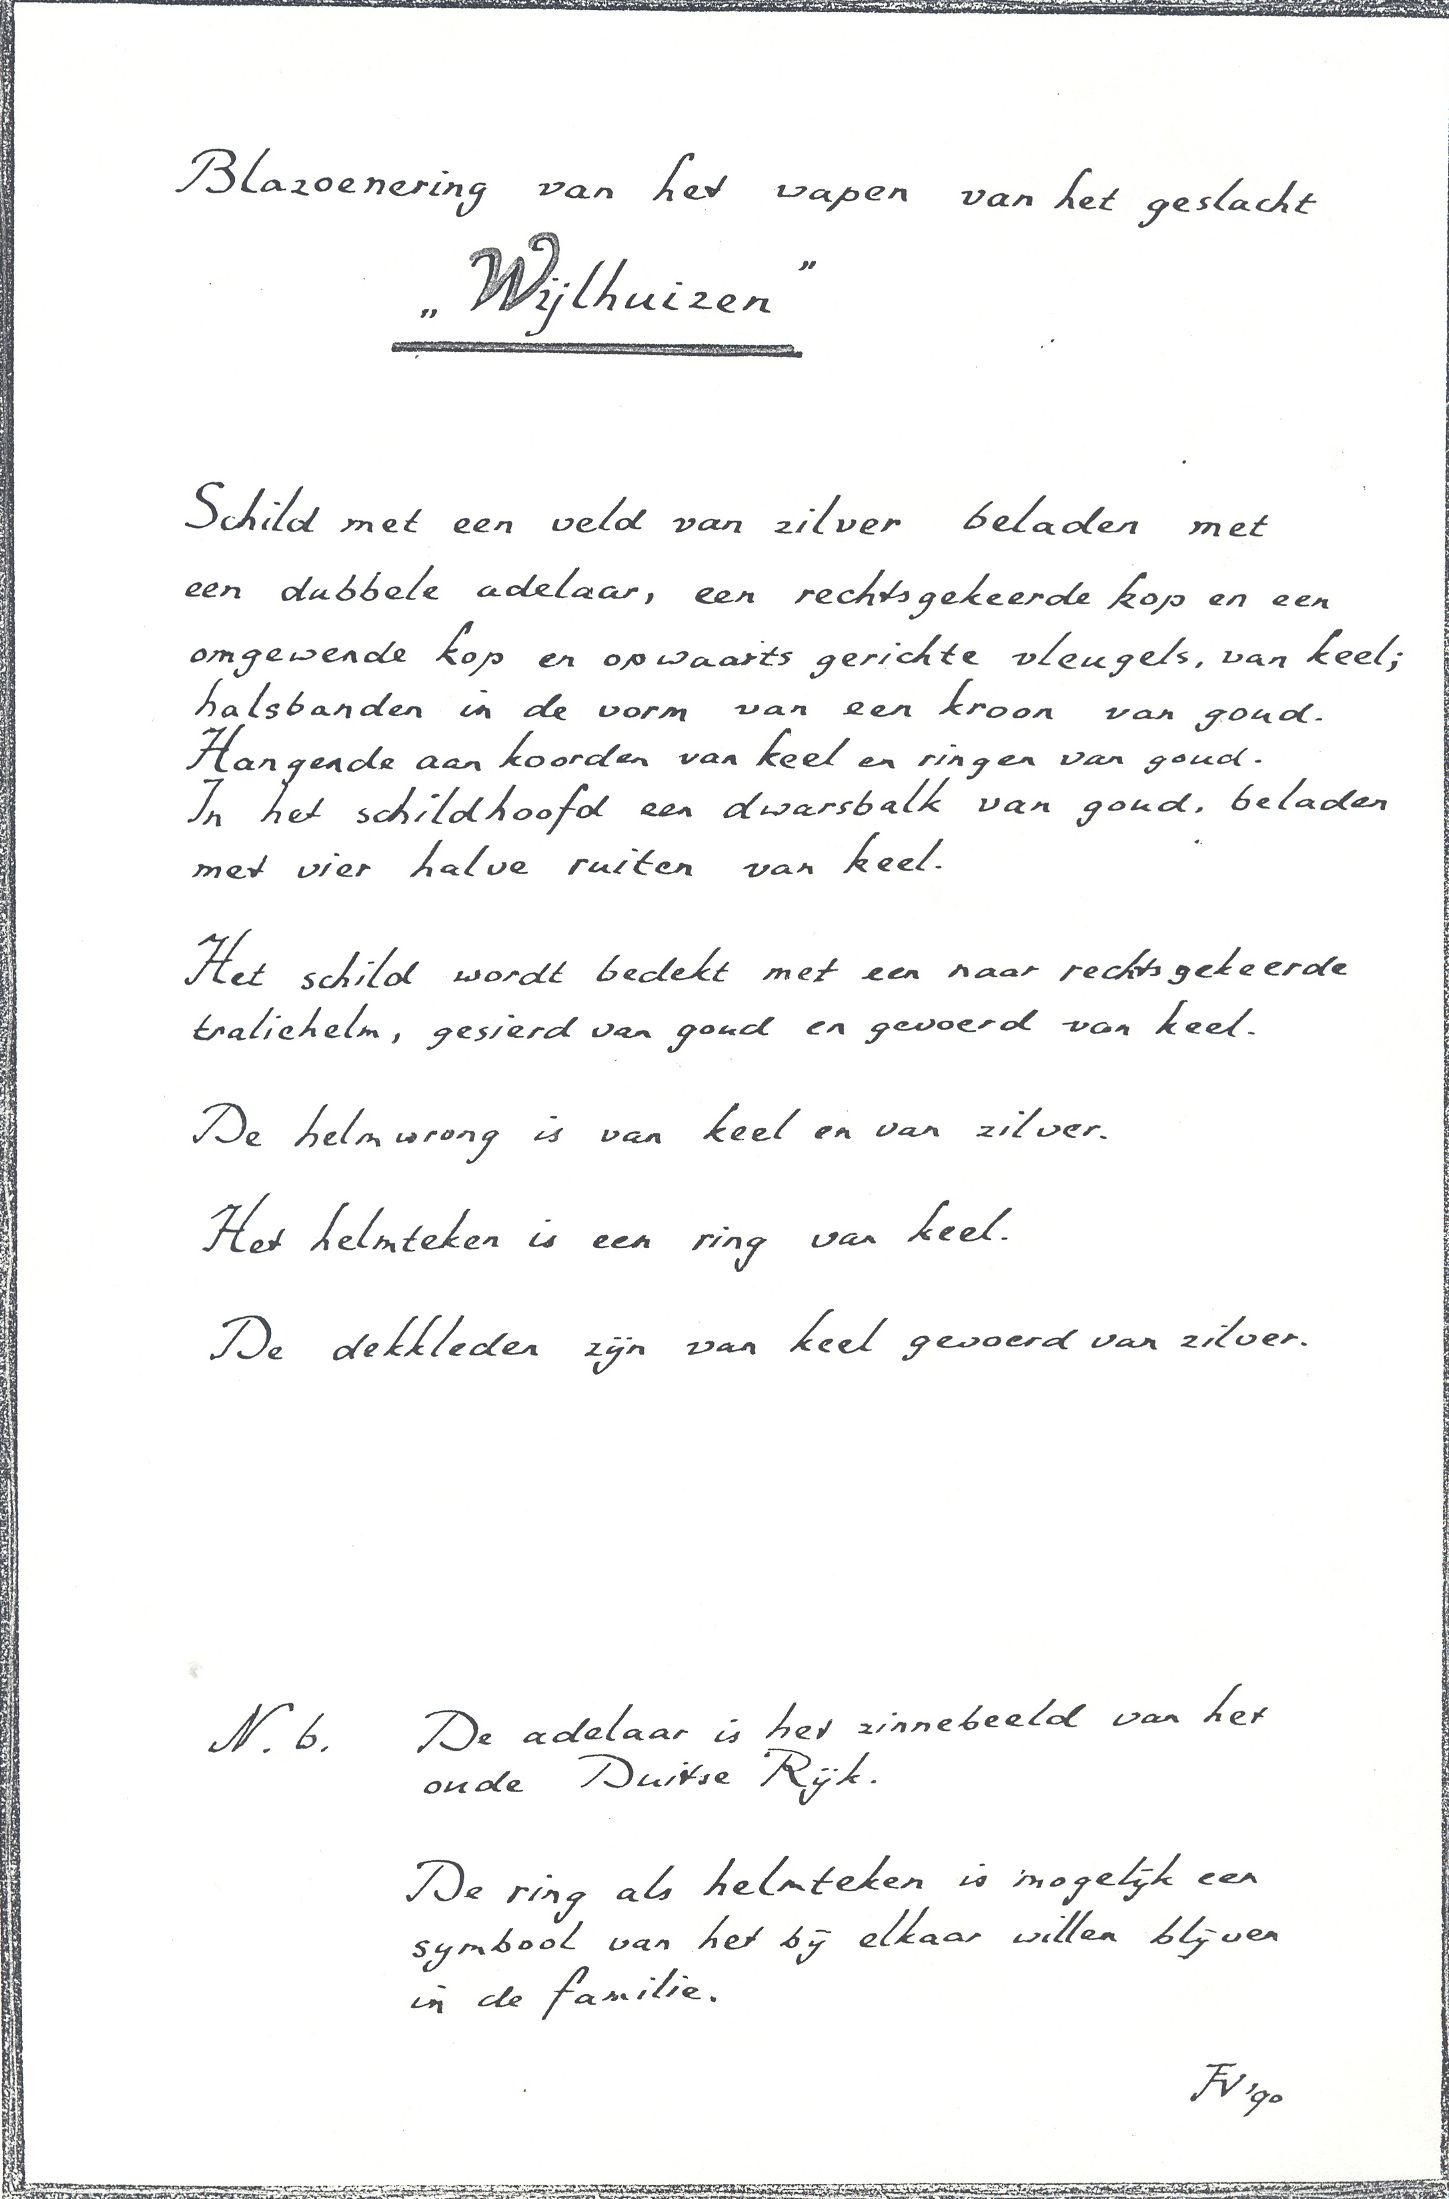 Blazoenering van het wapen van het geslacht
„Wijlhuizen”
Schild met een veld van zilver beladen met
een dubbele adelaar, een rechtsgekeerde kop en een
omgewende kop en opwaarts gerichte vleugels, van keel;
halsbanden in de vorm van een kroon van goud.
Hangende aan koorden van keel en ringen van goud.
In het schildhoofd een dwarsbalk van goud, beladen
met vier halve ruiten van keel.
Het schild wordt bedekt met een naar rechtsgekeerde
traliehelm, gesierd van goud en gevoerd van keel.
De helmwrong is van keel en van zilver.
Het helmteken is een ring van keel.
De dekkleden zijn van keel gevoerd van zilver.
N.b. De adelaar is het zinnebeeld van het
oude Duitse Rijk.
De ring als helmteken is mogelijk een
symbool van het bij elkaar willen blijven
in de familie.
FV '90